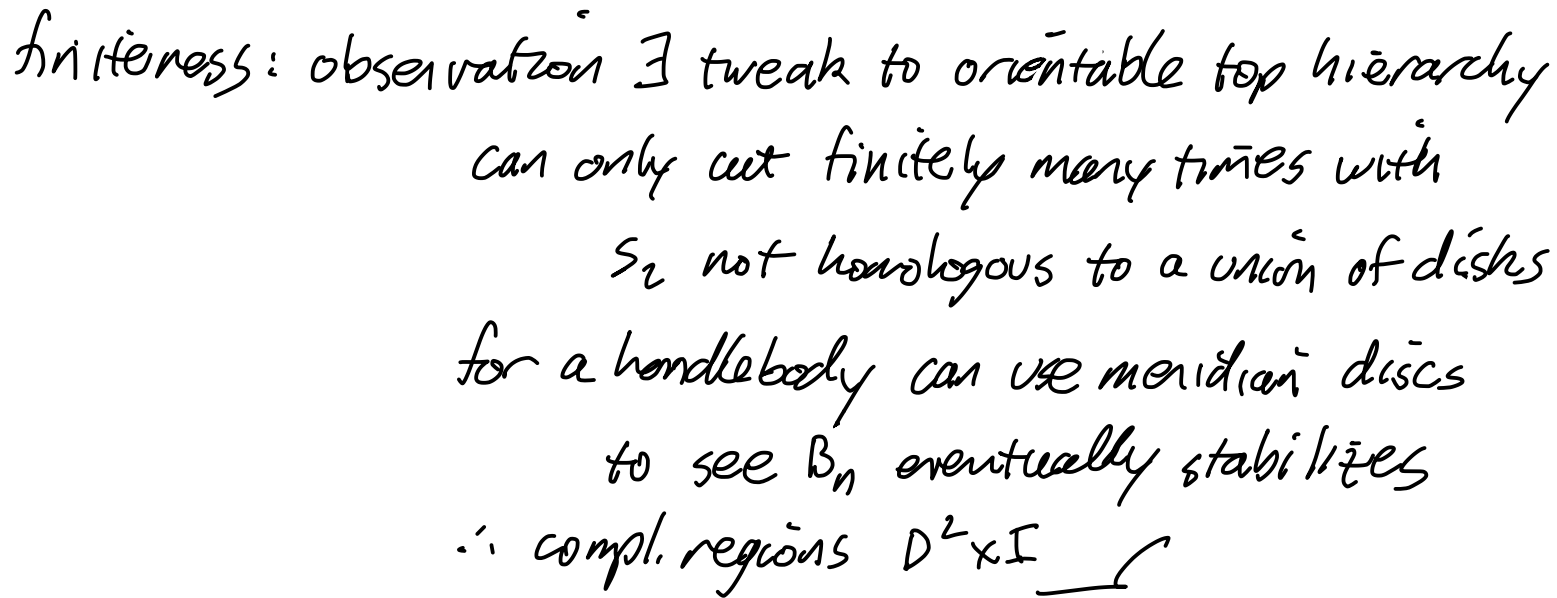 finiteness: observation ∃ tweak to orientable top hierarchy
can only cut finitely many times with
S₂ not homologous to a union of disks
for a handlebody can use meridian discs
to see Bₙ eventually stabilizes
∴ compl. regions D²×I